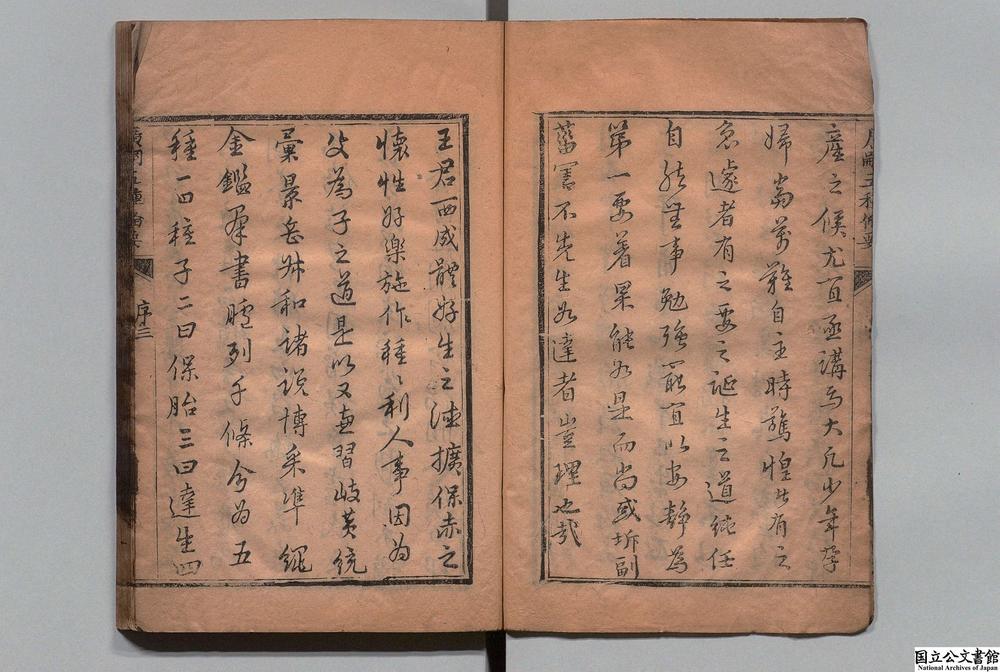 產之候尤宜亟講焉大凡少年孕
婦當萬難自主時驚惶者有之
急遽者有之要之誕生之道純任
自然無事勉強最宜以安靜為
第一要着果能如是而尚或坼副
菑害不先生如達者豈理也哉
王君西成體好生之德擴保赤之
懷性好樂施作種〻利人事因為
父為子之道是以又兼習岐黄統
彙景岳叔和諸說博采準繩
金鑑羣書臚列千條分為五
種一曰種子二曰保胎三曰達生四
序三
国立公文書館
National Archives of Japan